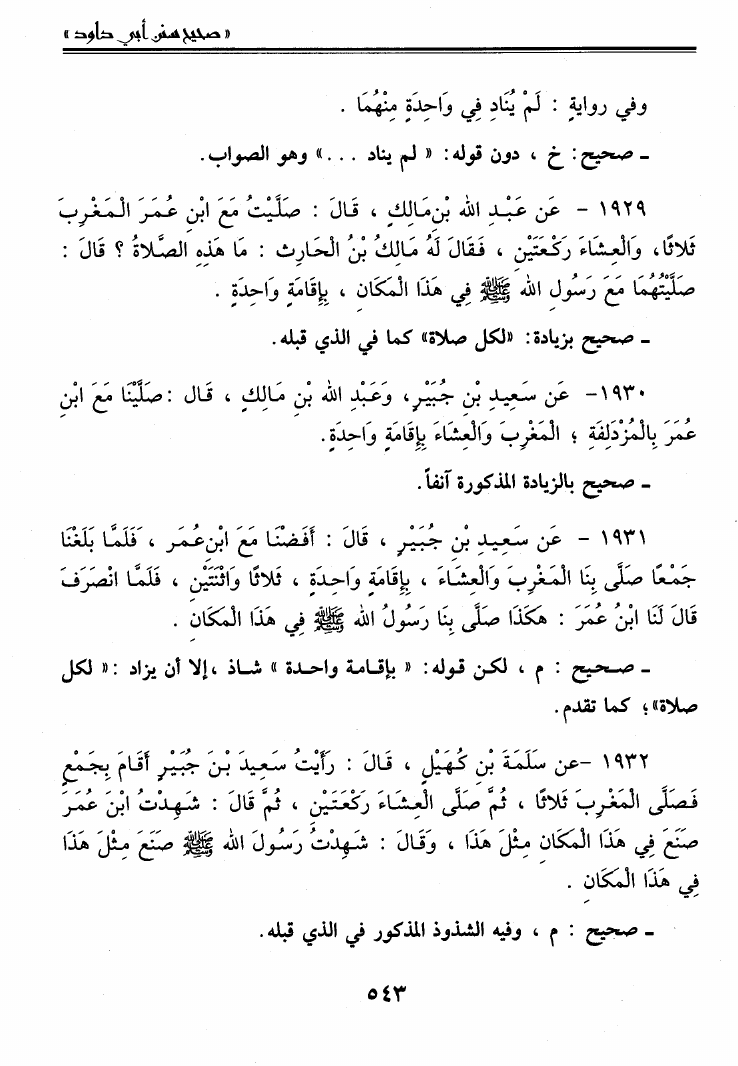 « صحيح سنن أبي داود »
وفي روايةٍ : لَمْ يُنَادِ فِي وَاحِدَةٍ مِنْهُمَا .
ـ صحيح: خ ، دون قوله: « لم يناد ...» وهو الصواب.
١٩٢٩ – عَن عَبْدِ الله بْنِ مَالِكٍ ، قَالَ : صَلَّيْتُ مَعَ ابْنِ عُمَرَ الْمَغْرِبَ
ثَلاثًا، وَالْعِشَاءَ رَكْعَتَيْنِ ، فَقَالَ لَهُ مَالِكُ بْنُ الْحَارِثِ : مَا هَذِهِ الصَّلاةُ ؟ قَالَ :
صَلَّيْتُهُمَا مَعَ رَسُولِ الله ﷺ فِي هَذَا الْمَكَانِ ، بِإِقَامَةٍ وَاحِدَةٍ .
ـ صحيح بزيادة: «لكل صلاة» كما في الذي قبله.
١٩٣٠– عَن سَعِيدِ بْنِ جُبَيْرٍ، وَعَبْدِ الله بْنِ مَالِكٍ ، قَال :صَلَّيْنَا مَعَ ابْنِ
عُمَرَ بِالْمُزْدَلِفَةِ ؛ الْمَغْرِبَ وَالْعِشَاءَ بِإِقَامَةٍ وَاحِدَةٍ.
ـ صحيح بالزيادة المذكورة آنفاً.
١٩٣١ – عَن سَعِيدِ بْنِ جُبَيْرٍ ، قَالَ : أَفَضْنَا مَعَ ابْنِ عُمَر ، فَلَمَّا بَلَغْنَا
جَمْعًا صَلَّى بِنَا الْمَغْرِبَ وَالْعِشَاءَ ، بِإِقَامَةٍ وَاحِدَةٍ ، ثَلاثًا وَاثْنَتَيْنِ ، فَلَمَّا انْصَرَفَ
قَالَ لَنَا ابْنُ عُمَرَ : هكَذَا صَلَّى بِنَا رَسُولُ الله ﷺ فِي هَذَا الْمَكَانِ .
ـ صحيح : م ، لكن قوله: « بإقامة واحدة » شاذ ،إلا أن يزاد :« لكل
صلاة»؛ كما تقدم.
١٩٣٢ –عن سَلَمَةَ بْنِ كُهَيْلٍ ، قَالَ : رَأَيْتُ سَعِيدَ بْنَ جُبَيْرٍ أَقَامَ بِجَمْعٍ
فَصَلَّى الْمَغْرِبَ ثَلاثًا ، ثُمَّ صَلَّى الْعِشَاءَ رَكْعَتَيْنِ ، ثُمَّ قَالَ : شَهِدْتُ ابْنَ عُمَرَ
صَنَعَ فِي هَذَا الْمَكَانِ مِثْلَ هَذَا ، وَقَالَ : شَهِدْتُ رَسُولَ الله ﷺ صَنَعَ مِثْلَ هَذَا
فِي هَذَا الْمَكَانِ .
ـ صحيح : م ، وفيه الشذوذ المذكور في الذي قبله.
٥٤٣